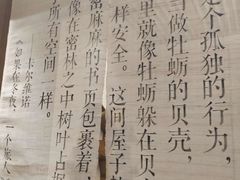 是个孤独的行为，
当做牡蛎的贝壳，
里就像牡蛎躲在贝
样安全。这间屋子
密麻麻的书页包裹着
像在密林之中树叶占据
所有空间一样。
——卡尔维诺
《如果在冬夜，一个旅人